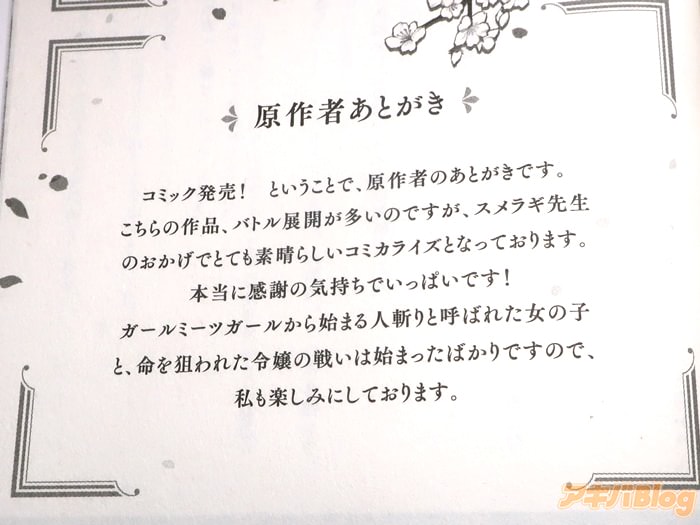 原作者あとがき
コミック発売！　ということで、原作者のあとがきです。
こちらの作品、バトル展開が多いのですが、スメラギ先生
のおかげでとても素晴らしいコミカライズとなっております。
本当に感謝の気持ちでいっぱいです！
ガールミーツガールから始まる人斬りと呼ばれた女の子
と、命を狙われた令嬢の戦いは始まったばかりですので、
私も楽しみにしております。
アキバBlog